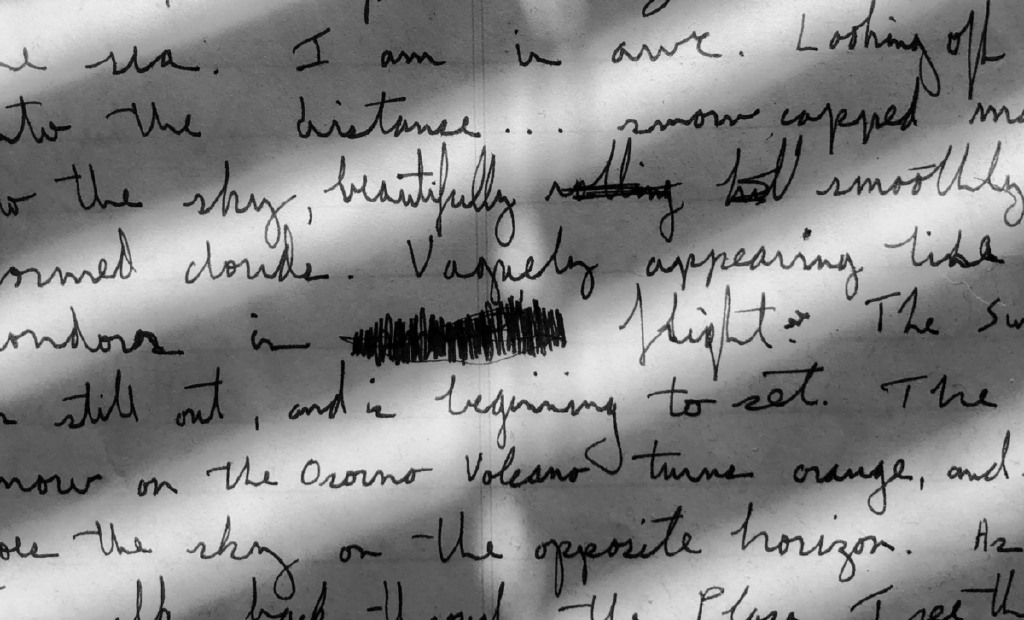 sea. I am in awe. Looking off
into the distance... snow capped
the sky, beautifully rolling smoothly
formed clouds. Vaguely appearing like
condors in flight. The
still out, and is beginning to set. The
snow on the Osorno Volcano turns orange, and
does the sky on the opposite horizon. As
back the Plaza I see